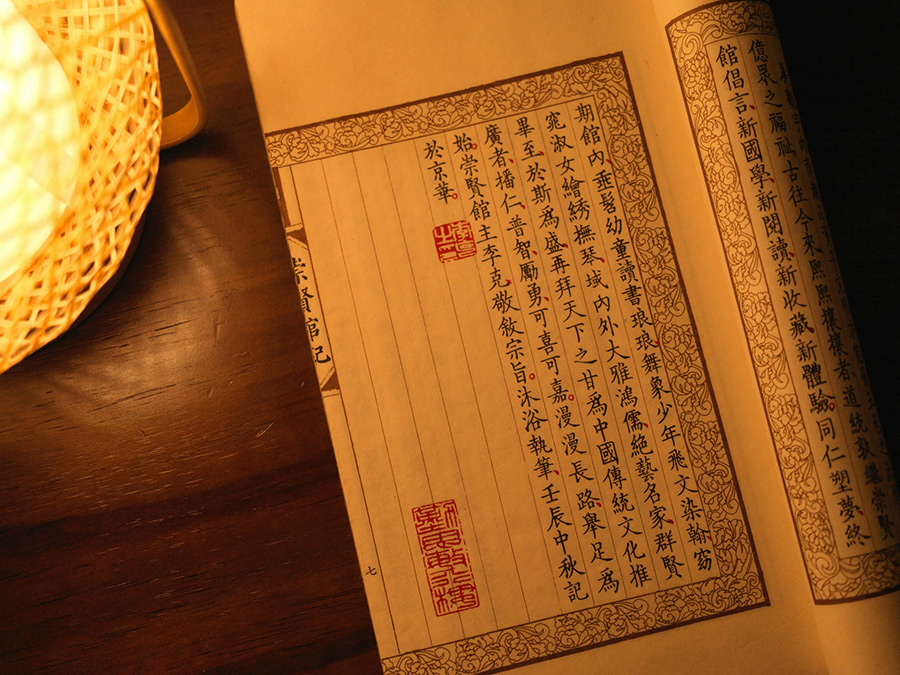 億眾之福祉古往今來熙熙攘攘者道統敦繼崇賢
館倡言、新國學、新閱讀、新收藏、新體驗。同仁塑夢、終
期館內、垂髫幼童讀書琅琅、舞象少年飛文染翰、窈
窕淑女繪綉撫琴、域內外大雅鴻儒、絕藝名家、群賢
畢至、於斯為盛、再拜天下之甘為中國傳統文化推
廣者、播仁、普智、勵勇、可喜可嘉。漫漫長路、舉足為
始。崇賢館主李克、敬敘宗旨。沐浴執筆、壬辰中秋記
於京華。
崇賢館記
七